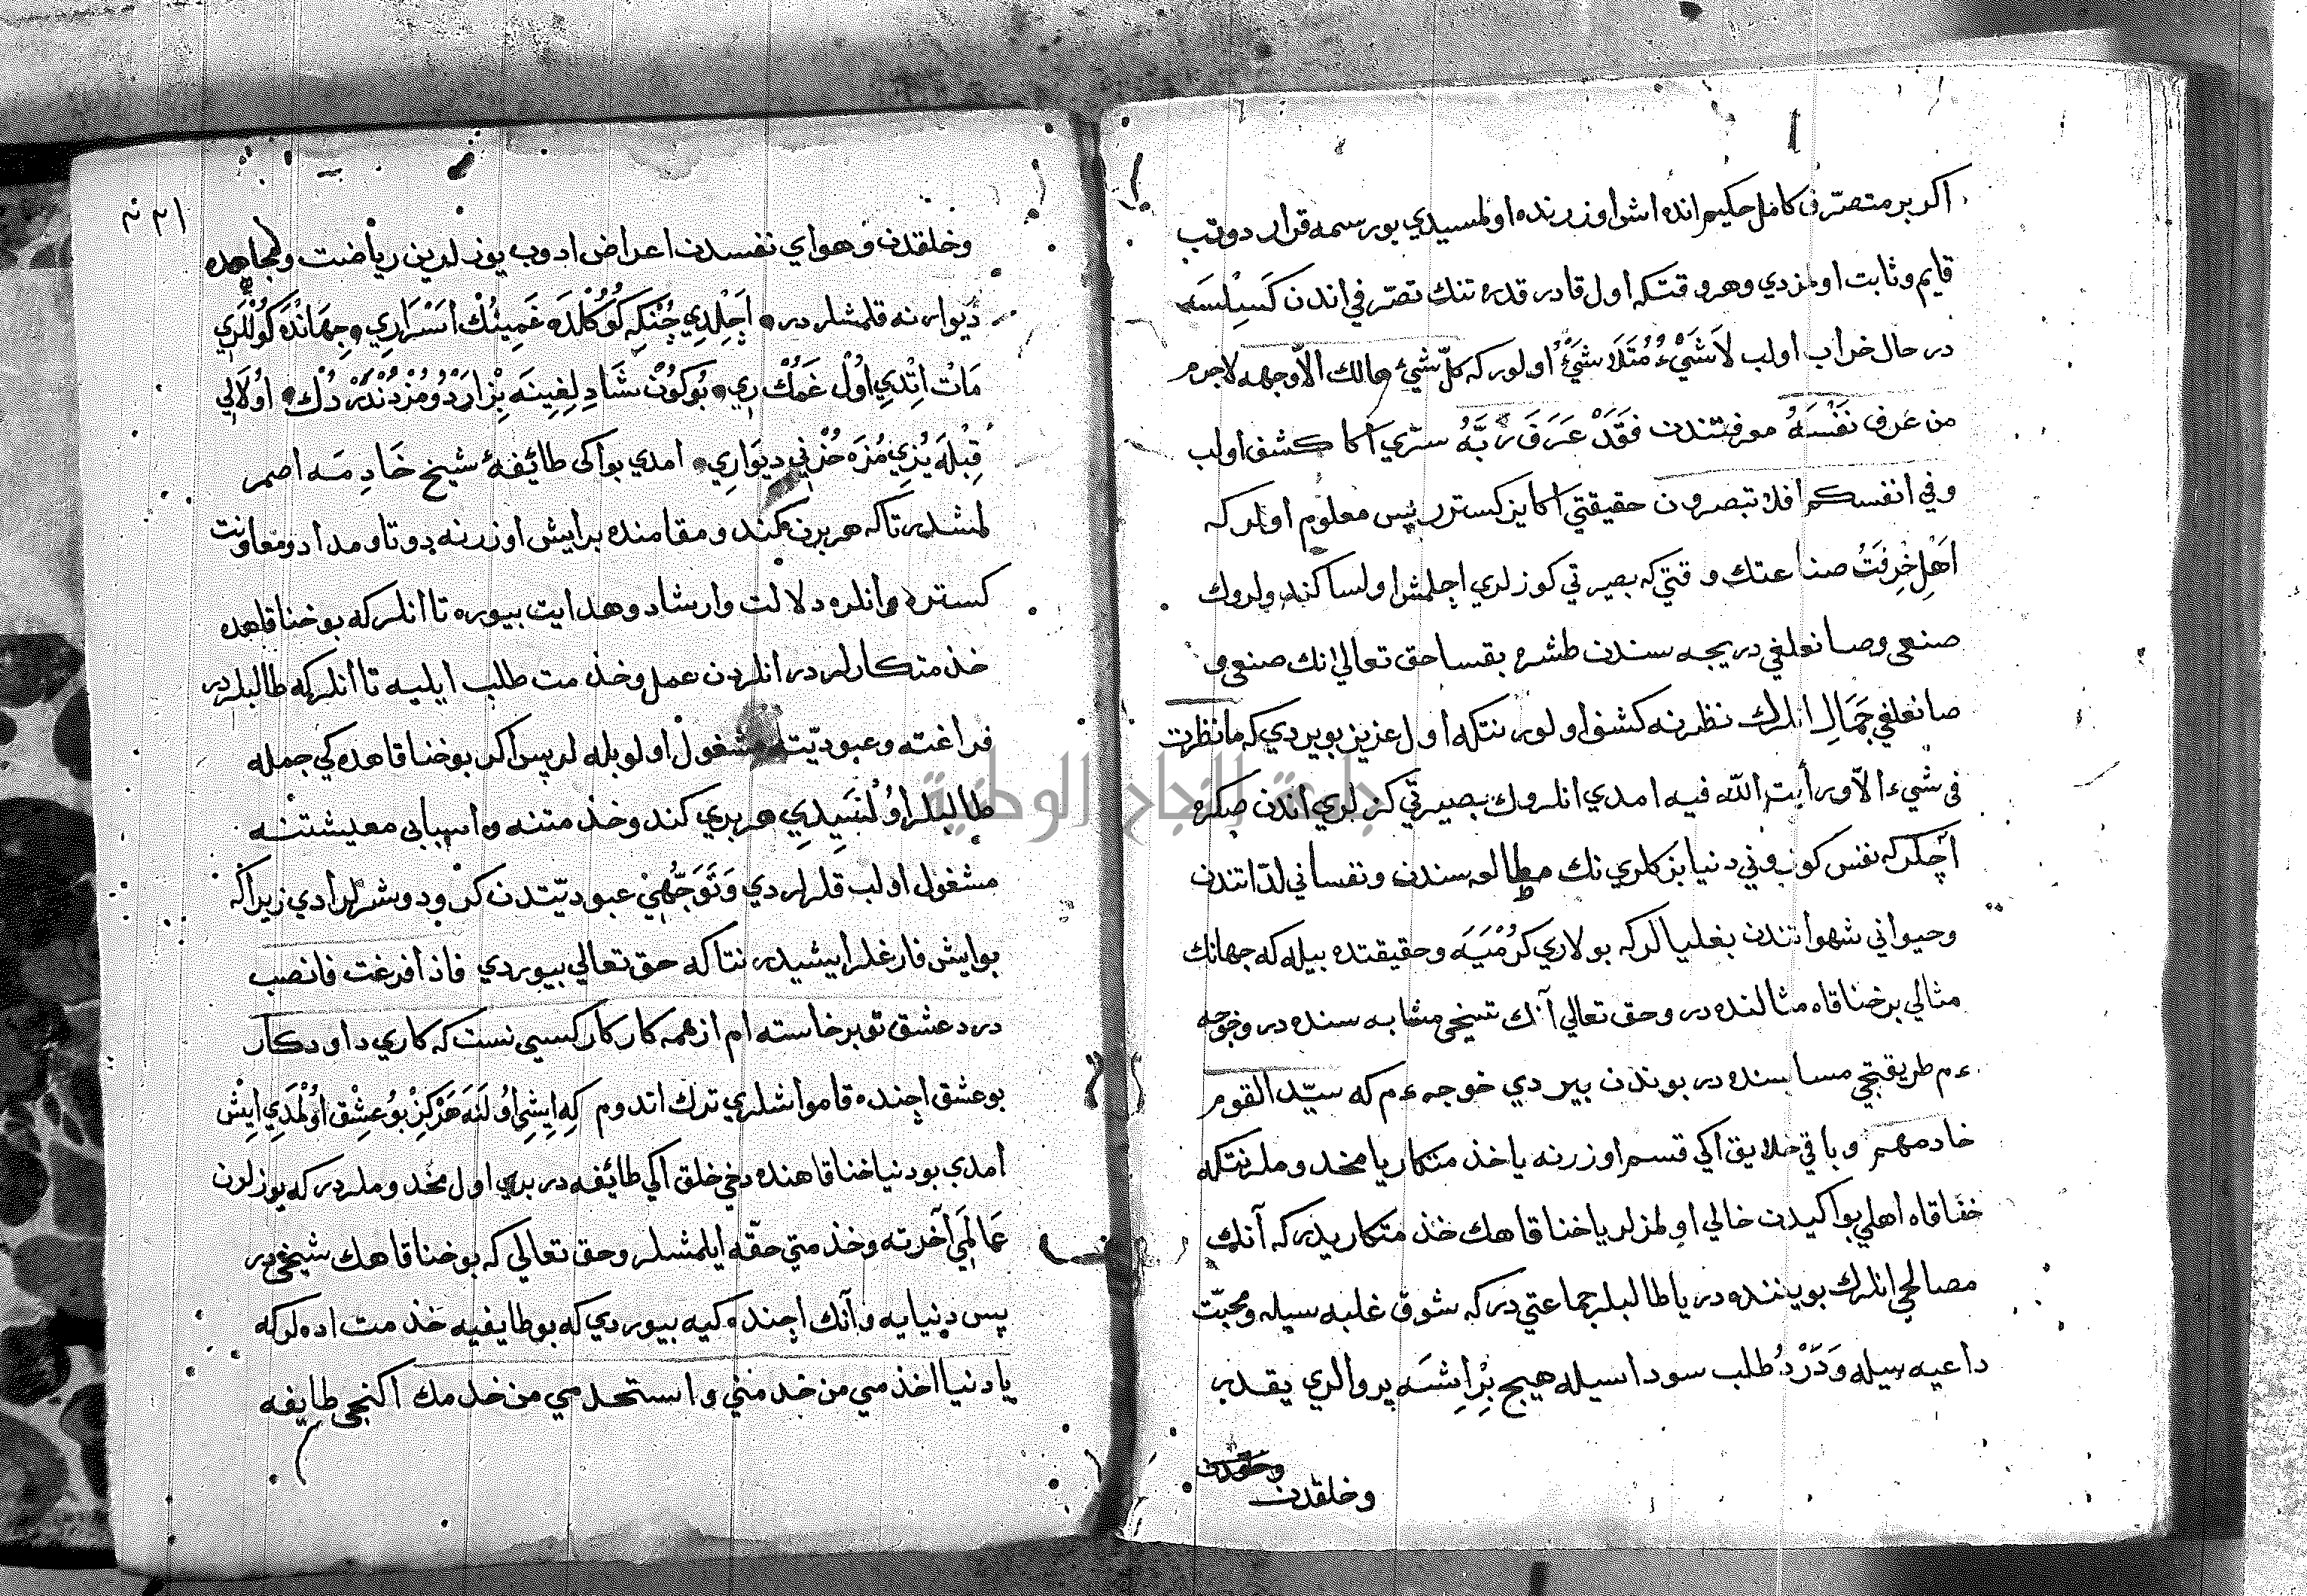 اكر بر متصرّف كامل حكيم انده اش اوزرنده اولمسيدي بو رسمه قرار دوتب
قايم وثابت اولمزدي وهر وقتكه اول قادر قدرتنك تصرّفي اندن كسيلسه
در حال خراب اولب لاَشَيْءُ مُتَلاَشَيْءُ اولور كه كلّ شيئ هالك الاّ وجهه لاجرم
من عرف نَفْسَهُ معرفتندن فَقَدْ عَرَفَ رَبَّهُ سرّي اكا كشف اولب
وفي انفسكم افلا تبصرون حقيقتي اكا يز كستررپس معلوم اولر كه
اَهْلِ حِرفَتْ صناعتك وقتي كه بصيرتي كوزلري اچلمش اولسا كندولروك
صنعى وصانعلغي دريجه سندن طشره بقسا حق تعالي انك صنعى و
صانعلغي جَمَالِ انلرك نظرنه كشف اولور نتكه اول عزيز بويردي كه مانظرت
فى شيء الاّ ورأيت اللّه فيه امدي انلروك بصيرتي كزلري اندن صكره
اچلر كه نفس كوزوني دنيا بزكلري نك مطالعه سندن ونفساني لذّاتندن
وحيواني شهواتندن بغليالر كه بولاري كرُمْيَيَه وحقيقتده بيله كه جهانك
مثالي بر خناقاه مثالنده در وحق تعالي آنك شيخى مثابه سنده در وخوجه
ءم طريقتچي مسابسنده در بوندن بيردي خوجه ءم كه سيّد القوم
خادمهم وباقي خلايق اكي قسم اوزرنه يا خذمتكار يا مخدوملر نتكه
خناقاه اهلي بو اكيدن خالي اولمزلر يا خناقاهك خذمتكاريدر كه آنك
مصالحي انلرك بويننده در يا طالبلر جماعتي در كه شوق غلبه سيله ومحبّت
داعيه سيله وَدَرْدُ طلب سودا سيله هيچ بِرْاِشَه پروالري يقدر
وخلقدن
وخلقدن وهواي نفسدن اعراض ادوب يوزلرين رياضت ومجاهده
ديوارنه قلمشلردر اَچِلْدِي چُنْكِه كُوكُلْدَه غَمِينُكْ اَسْرَارِي جِهَانْدَه كُونْلَرِي
مَاتْ اِتْدِي اوُلْ غَمُكْ رِي بُوكُونْ شَادِلِغِينَه
قِبْلَه يُزِي مُزَه حُزْنِي دِيوَارِي امدي بو اكى طائفهٔ شيخ خَادِمَه اصمر
لمشدر تاكه هر برن كند ومقامنده بر ايش اوزرنه دوتا ومدادومعاونت
كستره وانلره دلالت وارشاد وهدايت بيوره تا انلر كه بو خناقاهده
خذمتكارلر در انلردن عمل وخذمت طلب ايليه تا انلر كه طالبلردر
فراغته وعبوديّته مشغول اولو بله لر پس اكر بو خناقاهده كي جمله
طالبلر اوُلْنَسِيدِي هر بري كند وخذمتنه واسبابى معيشتنه
مشغول اولب قلرلردي وَتَوَجُّهِىْ عبوديّتدن كرو دوشرلرادي زيرا كه
بو ايش فارغلر ايشيدر نتاكه حق تعالي بيوردي فاذا فرغت فانصب
در د عشق تو بر خاسته ام از همه كار كار كسىى نست كه كاري داود كار
بو عشق اچنده قامو اشلري ترك اتدوم كِه اِيشِي اوُلَنَه هَرْكِزْ بوُعِشْق اوُلْمَدِي اِيشْ
امدي بو دنيا خناقاهنده دخي خلق اكي طائيفه در بري اول مخدوملردر كه يوزلرن
عَالَمِي آخرته وخذمتي حقّه ايلمشلر وحق تعالي كه بو خناقاهك شيخى در
پس دنيايه وآنك اچنده كيه بيوردي كه بو طايفيه خذمت اده لر كه
يا دنيا اخذمي من خدمني واستخدمي من خدمك اكنجى طايفه
جامعة النجاح الوطنية